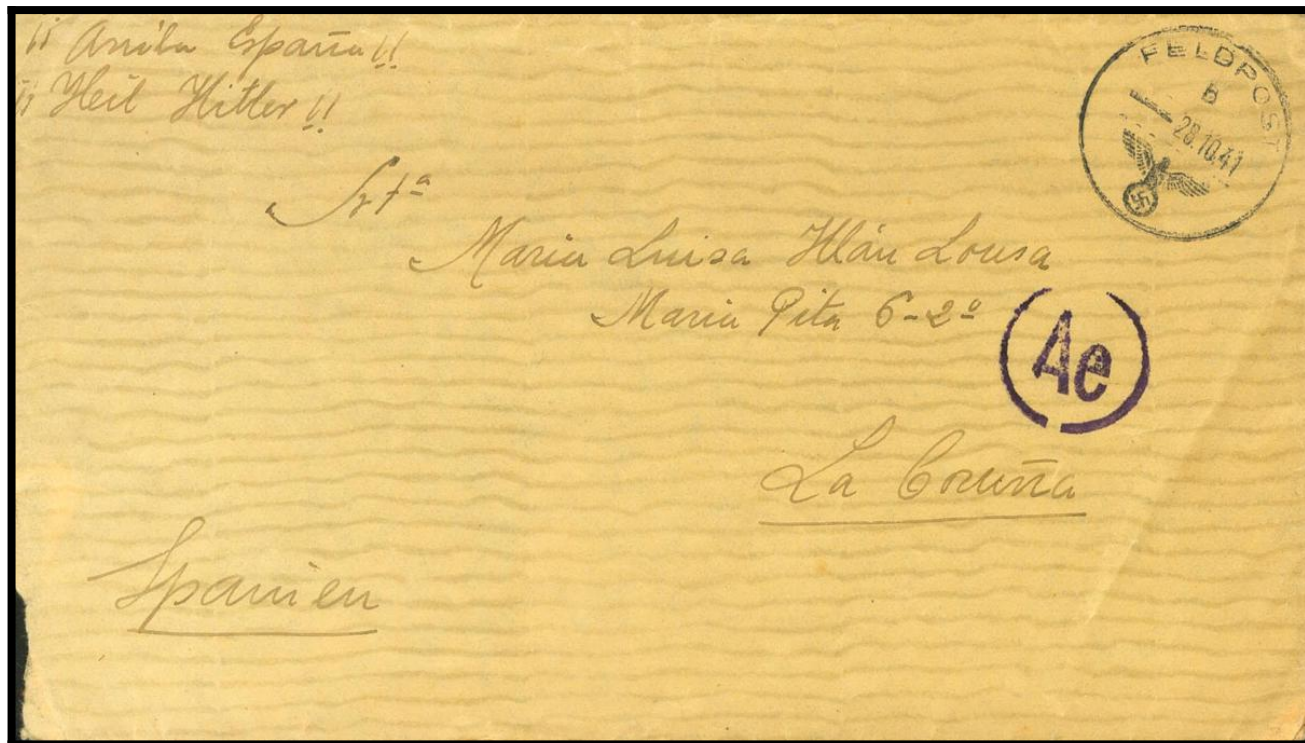 ¡¡ Arriba España!!
¡¡ Heil Hitler!!
FELDPOST
b
28.10.41
Srtª
Maria Luisa Illán Lousa
Maria Pita 6-2º
Ae
La Coruña
Spanien